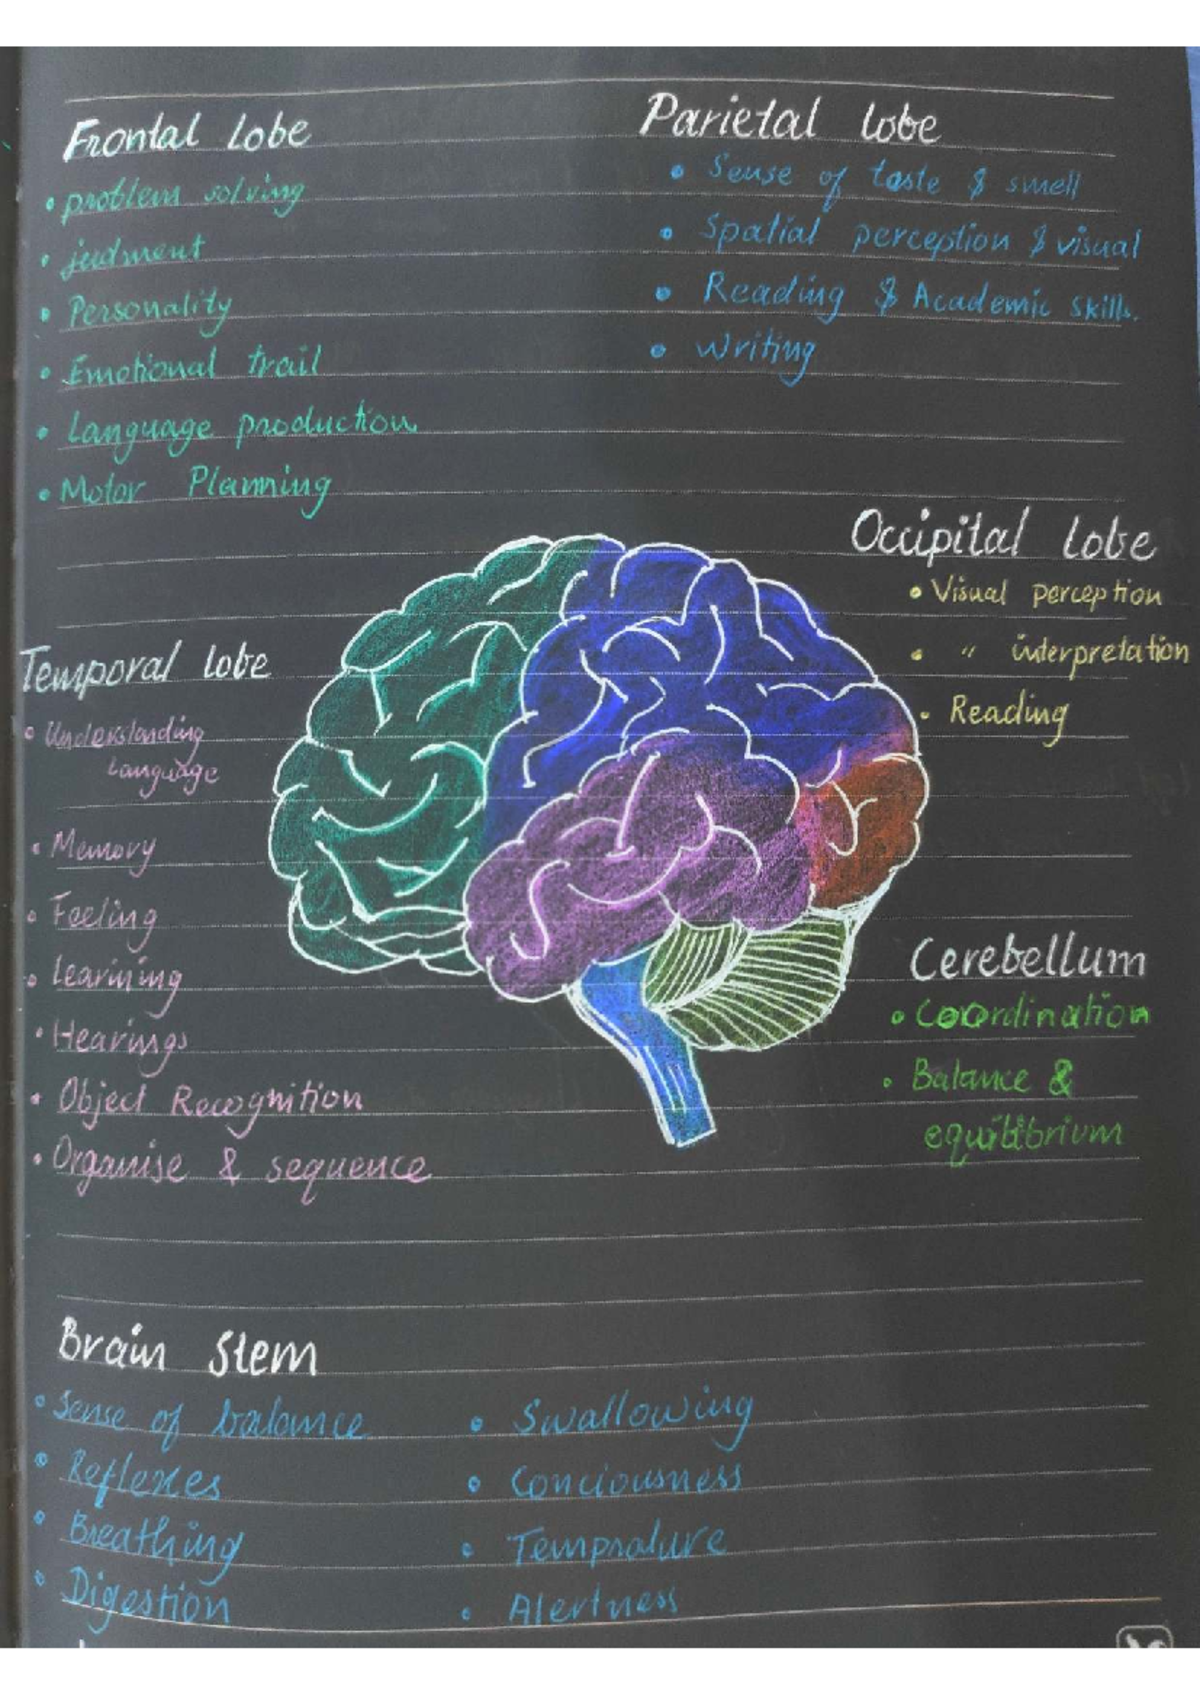 Frontal lobe
• problem solving
• judment
• Personality
• Emotional trail
• Language production
• Motor Planning
Parietal lobe
• Sense of taste & smell
• Spatial perception & visual
• Reading & Academic skills.
• Writing
Occipital lobe
• Visual perception
• " interpretation
• Reading
Temporal lobe
• Understanding
Language
• Memory
• Feeling
• Learining
• Hearings
• Object Recognition
• Organise & sequence
Cerebellum
• Coordination
• Balance &
equilibrium
Brain Stem
• Sense of balance
• Reflexes
• Breathing
• Digestion
• Swallowing
• Conciousness
• Temprature
• Alertness